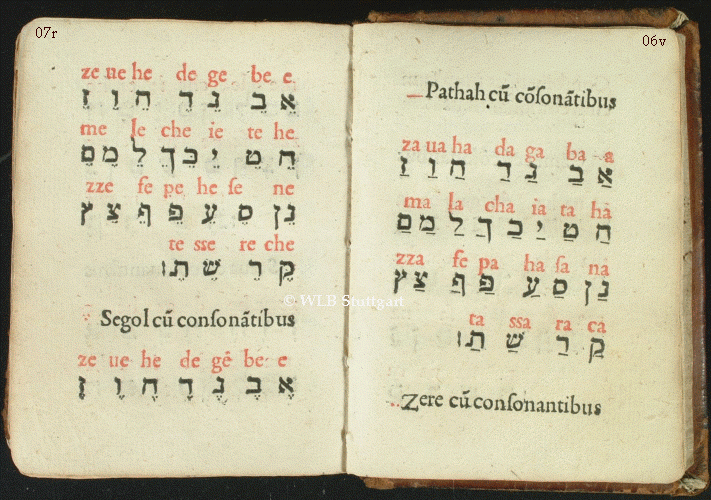 06v
Pathah cū cōſonātibus
za ua ha da ga ba a
אַ בַ גַ דַ הַ וַ זַ
ma la cha ia ta ha
חַ טַ יַ כַ ךַ לַ מַ םַ
zza fe pa ha ſa na
נַ ן סַ עַ פַּ ףַ צַ ץ
ta ssa ra ca
קַ רַ שַׁ תַ׃
Zere cū conſonantibus
07r
ze ue he de ge be e
אֵ בֵ גֵ דֵ הֵ וֵ זֵ
me le che ie te he
חֵ טֵ יֵ כֵ ךֵ לֵ מֵ םֵ
zze fe pe he ſe ne
נֵ ן סֵ עֵ פֵּ ףֵ צֵ ץ
te sse re che
קֵ רֵ שֵׁ תֵ׃
Segol cū conſonātibus
ze ue he de ge be e
אֶ בֶ גֶ דֶ הֶ וֶ זֶ
© WLB Stuttgart